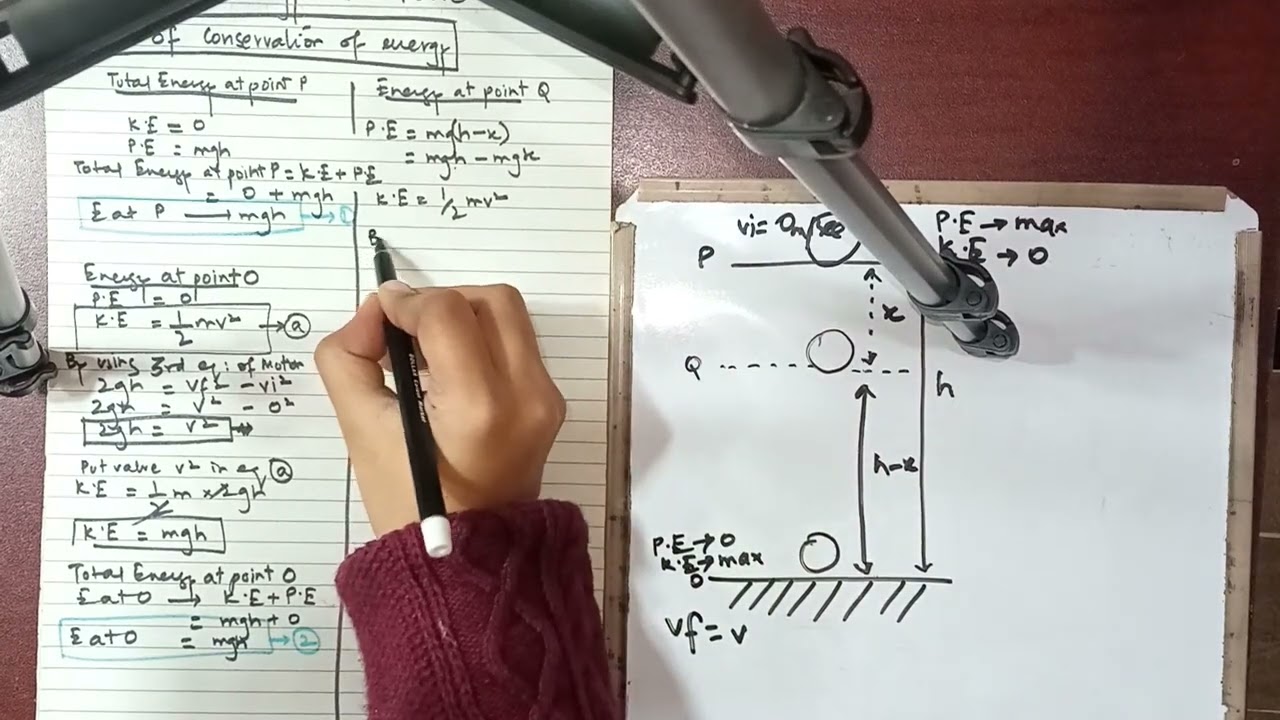 of conservation of energy
Total Energy at point P
K.E = 0
P.E = mgh
Total Energy at point P = K.E + P.E
= 0 + mgh
E at P → mgh → ①
Energy at point O
P.E = 0
K.E = 1/2 mv² → ⓐ
By using 3rd eq: of Motion
2gh = vf² - vi²
2gh = v² - 0²
2gh = v² →
Put value v² in eq ⓐ
K.E = 1/2 m × 2gh
K.E = mgh
Total Energy at point O
E at O → K.E + P.E
= mgh + 0
E at O = mgh → ②
Energy at point Q
P.E = mg(h-x)
= mgh - mgx
K.E = 1/2 mv²
B
vi = 0m/sec
P.E → max
K.E → 0
P
x
Q
h
h-x
P.E → 0
K.E → max
O
vf = v